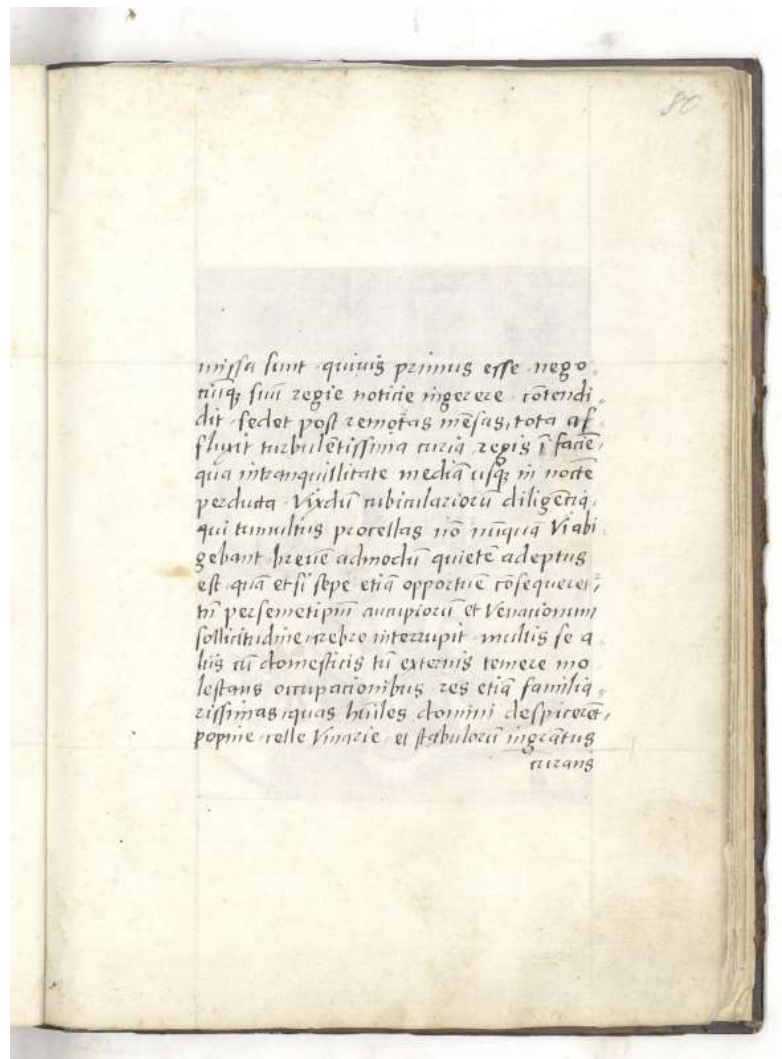 80
missa sunt · quiuis primus esse · nego
tiūq; suū regie noticie ingerere · cōtendi
dit · sedet post remotas mēsas, tota af
fluxit turbulētissima curia regis ī faciē
qua intranquillitate mediā usq; in noctē
perducta · Vixdū cubiculariorū diligēcia,
qui tumultus procellas nō nūquā Vi abi
gebant · breuē admodū quietē adeptus
est · quā et si sepe etiā opportūe cōsequeret,
tn̄ per semetipm̄ aucupiorū et Venacionum
sollicitudine crebre interrupit · multis se a
liis cū domesticis tū externis temere mo
lestans occupacionibus · res etiā familia
rissimas, quas hūiles domini despicerēt,
popine · celle Vinarie · et stabulorū ingratus
curans